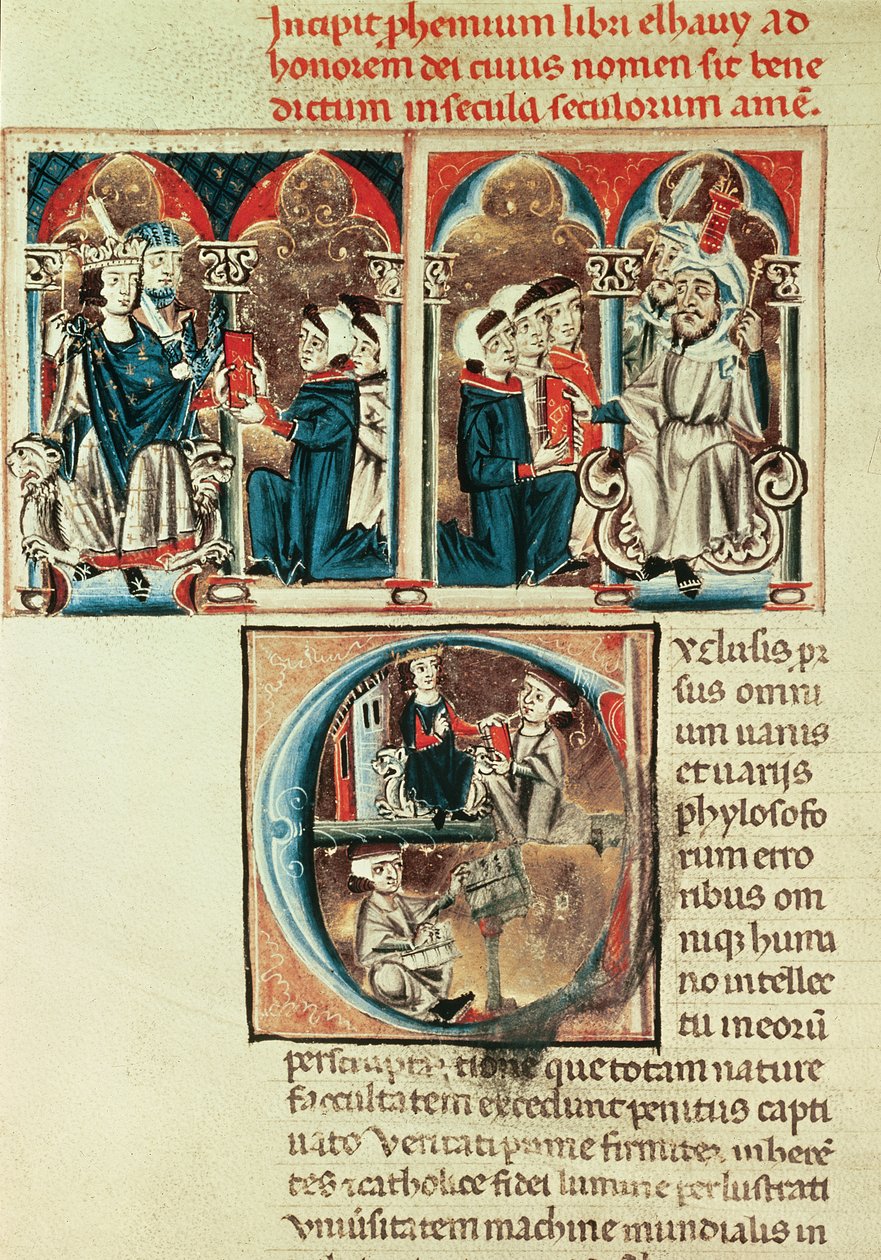 Incipit phemium libri elhauy ad
honorem dei cuius nomen sit bene
dictum in secula seculorum amē.
Xclusis pr
sus omni
um uanis
et uarijs
phylosofo
rum erro
ribus om
niqʒ huma
no intellec
tu in eorū
que totam nature
faccultatem excedunt penitus capti
uato Veritati prime firmiter inherē
tes ⁊ catholice fidei lumine perlustrati
Vniuersitatem machine mundialis in